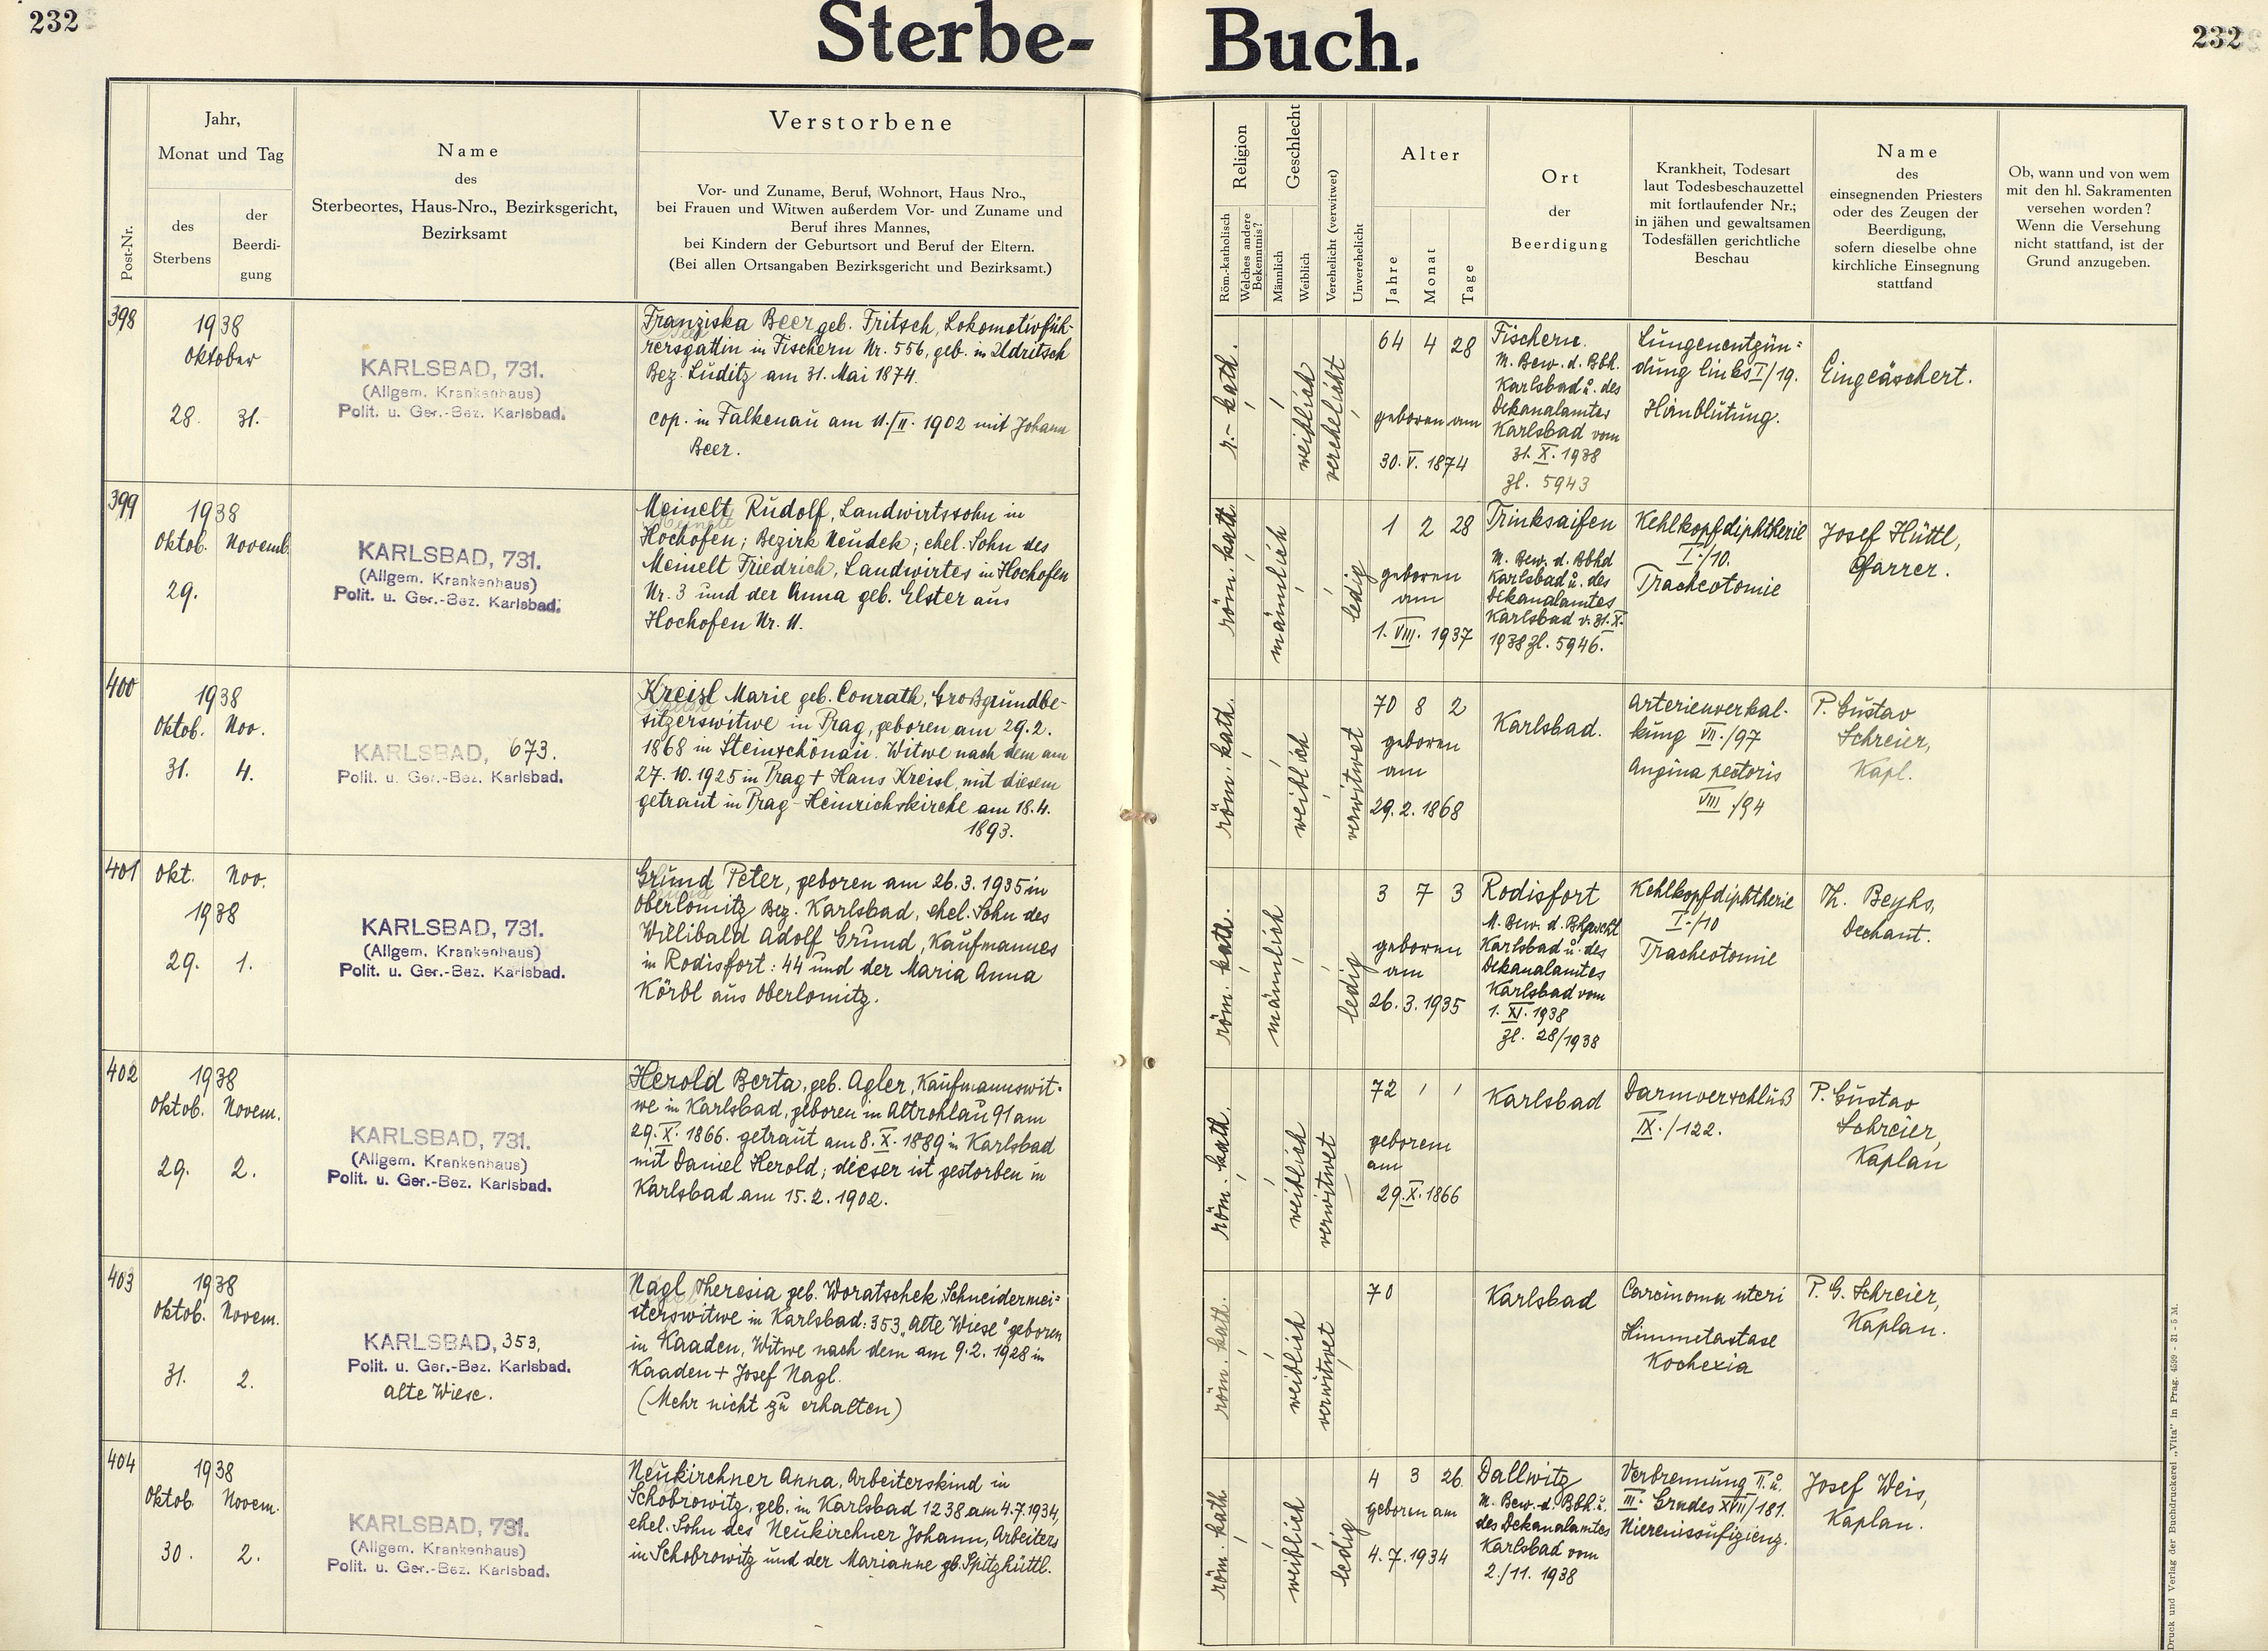 232
Sterbe-
Buch.
232
Post-Nr.
Jahr,
Monat und Tag
des
Sterbens
der
Beerdi-
gung
Name
des
Sterbeortes, Haus-Nro., Bezirksgericht,
Bezirksamt
Verstorbene
Vor- und Zuname, Beruf, Wohnort, Haus Nro.,
bei Frauen und Witwen außerdem Vor- und Zuname und
Beruf ihres Mannes,
bei Kindern der Geburtsort und Beruf der Eltern.
(Bei allen Ortsangaben Bezirksgericht und Bezirksamt.)
Religion
Röm.-katholisch
Welches andere
Bekenntnis?
Geschlecht
Männlich
Weiblich
Verehelicht (verwitwet)
Unverehelicht
Alter
Jahre
Monat
Tage
Ort
der
Beerdigung
Krankheit, Todesart
laut Todesbeschauzettel
mit fortlaufender Nr.;
in jähen und gewaltsamen
Todesfällen gerichtliche
Beschau
Name
des
einsegnenden Priesters
oder des Zeugen der
Beerdigung,
sofern dieselbe ohne
kirchliche Einsegnung
stattfand
Ob, wann und von wem
mit den hl. Sakramenten
versehen worden?
Wenn die Versehung
nicht stattfand, ist der
Grund anzugeben.
398
1938
Oktober
28. 31.
KARLSBAD, 731.
(Allgem. Krankenhaus)
Polit. u. Ger.-Bez. Karlsbad.
Franziska Beer geb. Fritsch, Lokomotivfüh-
rersgattin in Fischern Nr. 556, geb. in Udritsch
Bez. Luditz am 31. Mai 1874.
cop. in Falkenau am 11./II. 1902 mit Johann
Beer.
r.-kath.
weiblich
verehelicht
64 4 28
geboren am
30. V. 1874
Fischern.
M. Bew. d. Bbh.
Karlsbad u. des
Dekanalamtes
Karlsbad vom
31. X. 1938
Zl. 5943
Lungenentzün-
dung links I/19.
Hirnblutung.
Eingeäschert.
399
1938
Oktob. Novemb.
29.
KARLSBAD, 731.
(Allgem. Krankenhaus)
Polit. u. Ger.-Bez. Karlsbad.
Meinelt Rudolf, Landwirtssohn in
Hochofen; Bezirk Neudek; ehel. Sohn des
Meinelt Friedrich, Landwirtes in Hochofen
Nr. 3 und der Anna geb. Elster aus
Hochofen Nr. 11.
röm. kath.
männlich
ledig
1 2 28
geboren
am
1. VIII. 1937
Trinksaifen
M. Bew. d. Bbhd
Karlsbad u. des
Dekanalamtes
Karlsbad v. 31. X.
1938 Zl. 5946.
Kehlkopfdiphtherie
I./10.
Tracheotomie
Josef Hüttl,
Pfarrer.
400
1938
Oktob. Nov.
31. 4.
KARLSBAD, 673.
Polit. u. Ger.-Bez. Karlsbad.
Kreisl Marie geb. Conrath, Großgrundbe-
sitzerswitwe in Prag, geboren am 29.2.
1868 in Steinschönau. Witwe nach dem am
27.10.1925 in Prag + Hans Kreisl, mit diesem
getraut in Prag-Heinrichskirche am 18.4.
1893.
röm. kath.
weiblich
verwitwet
70 8 2
geboren
am
29. 2. 1868
Karlsbad.
Arterienverkal-
kung VII./97
Angina pectoris
VIII./94
P. Gustav
Schreier,
Kapl.
401
Okt. Nov.
1938
29. 1.
KARLSBAD, 731.
(Allgem. Krankenhaus)
Polit. u. Ger.-Bez. Karlsbad.
Grund Peter, geboren am 26.3.1935 in
Oberlomitz Bez. Karlsbad, ehel. Sohn des
Willibald Adolf Grund, Kaufmannes
in Rodisfort: 44 und der Maria Anna
Körbl aus Oberlomitz.
röm. kath.
männlich
ledig
3 7 3
geboren
am
26. 3. 1935
Rodisfort
M. Bew. d.
Karlsbad u. des
Dekanalamtes
Karlsbad vom
1. XI. 1938
Zl. 28/1938
Kehlkopfdiphtherie
I./10
Tracheotomie
Th. Beyhs,
Dechant.
402
1938
Oktob. Novem.
29. 2.
KARLSBAD, 731.
(Allgem. Krankenhaus)
Polit. u. Ger.-Bez. Karlsbad.
Herold Berta, geb. Agler, Kaufmannswit-
we in Karlsbad, geboren in Altrohlau 91 am
29. X. 1866. getraut am 8. X. 1889 in Karlsbad
mit Daniel Herold; dieser ist gestorben in
Karlsbad am 15.2.1902.
röm. kath.
weiblich
verwitwet
72 ' '
geborem
am
29. X. 1866
Karlsbad
Darmverschluß
IX./122.
P. Gustav
Schreier,
Kaplan
403
1938
Oktob. Novem.
31. 2.
KARLSBAD, 353,
Polit. u. Ger.-Bez. Karlsbad.
Alte Wiese.
Nagl Theresia geb. Woratschek Schneidermei-
sterswitwe in Karlsbad: 353 „Alte Wiese" geboren
in Kaaden, Witwe nach dem am 9.2.1928 in
Kaaden + Josef Nagl.
(Mehr nicht zu erhalten)
röm. kath.
weiblich
verwitwet
70
Karlsbad
Carcinoma uteri
Hirnmetastase
Kochexia
P. G. Schreier,
Kaplan.
404
1938
Oktob Novem.
30. 2.
KARLSBAD, 731.
(Allgem. Krankenhaus)
Polit. u. Ger.-Bez. Karlsbad.
Neukirchner Anna, Arbeiterskind in
Schobrowitz, geb. in Karlsbad 1238 am 4.7.1934,
ehel. Sohn des Neukirchner Johann, Arbeiters
in Schobrowitz und der Marianne gb. Spitzhüttl.
röm. kath
weiblich
ledig
4 3 26
geboren am
4. 7. 1934
Dallwitz
M. Bew. d. Bbh. u.
des Dekanalamtes
Karlsbad vom
2./11. 1938
Verbrennung II. u.
III. Grades XVII/181.
Nierenissufizienz.
Josef Weis,
Kaplan.
Druck und Verlag der Buchdruckerei „Vita" in Prag. 4599 - 31 - 5 M.